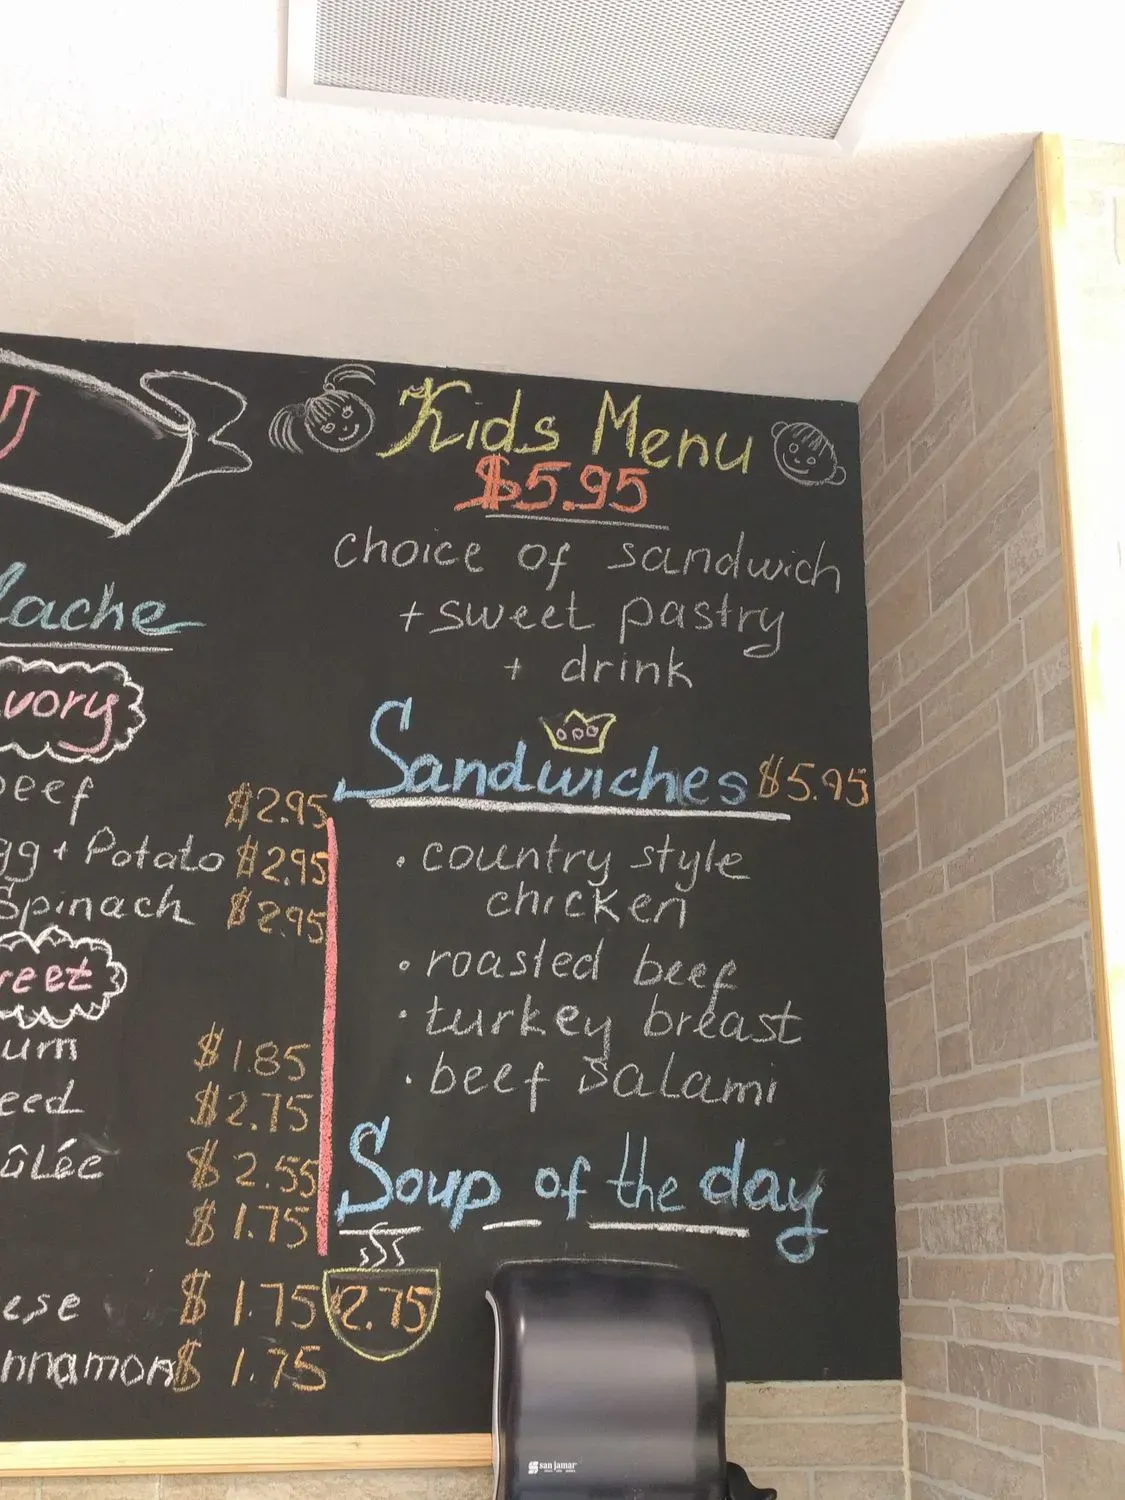 Kids Menu
$5.95
choice of sandwich
+ sweet pastry
+ drink
Sandwiches $5.95
• country style
chicken
• roasted beef
• turkey breast
• beef salami
Soup of the day
$2.75
lache
vory
beef $2.95
gg + Potato $2.95
Spinach $2.95
eet
um $1.85
eed $2.75
ûlée $2.55
$1.75
ese $1.75
nnamon $1.75
san jamar